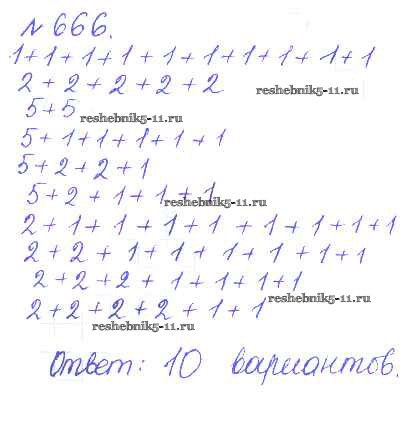 № 666.
1+1+1+1+1+1+1+1+1+1
2 + 2 + 2 + 2 + 2
reshebnik5-11.ru
5+5
reshebnik5-11.ru
5+1+1+1+1+1
5+2+2+1
5+2+1+1+1
reshebnik5-11.ru
2+1+1+1+1+1+1+1+1
2+2+1+1+1+1+1+1
2+2+2+1+1+1+1
reshebnik5-11.ru
2+2+2+2+1+1
reshebnik5-11.ru
Ответ: 10 вариантов.